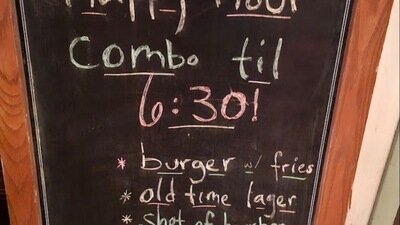 Happy Hour
Combo til
6:30!
* burger w/ fries
* old time lager
* shot of bourbon